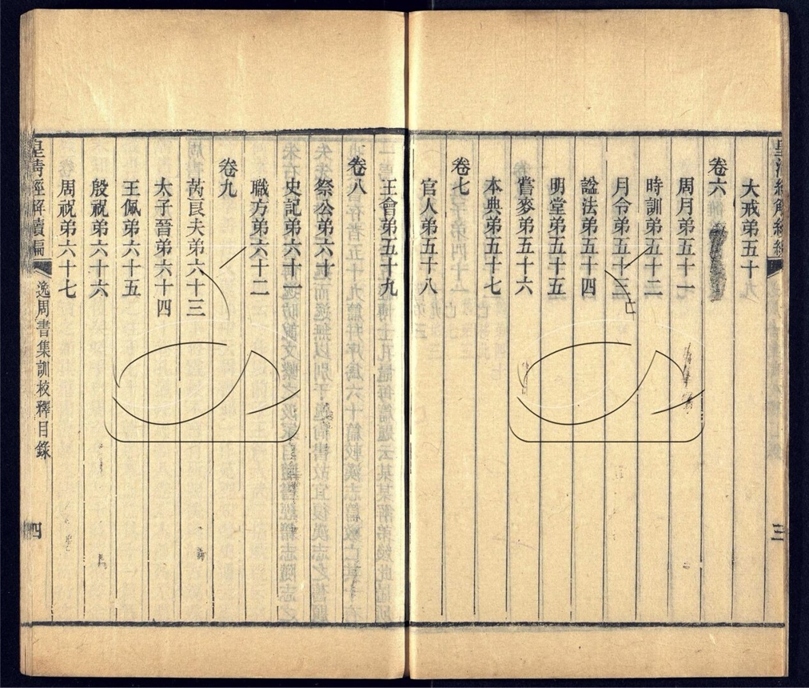 皇清經解續編
三
大戒弟五十
卷六
周月弟五十一
時訓弟五十二
月令弟五十三亡
諡法弟五十四
明堂弟五十五
嘗麥弟五十六
本典弟五十七
卷七
官人弟五十八
王會弟五十九
卷八
祭公弟六十
史記弟六十一
職方弟六十二
卷九
芮良夫弟六十三
太子晉弟六十四
王佩弟六十五
殷祝弟六十六
周祝弟六十七
皇清經解續編
逸周書集訓校釋目錄
四